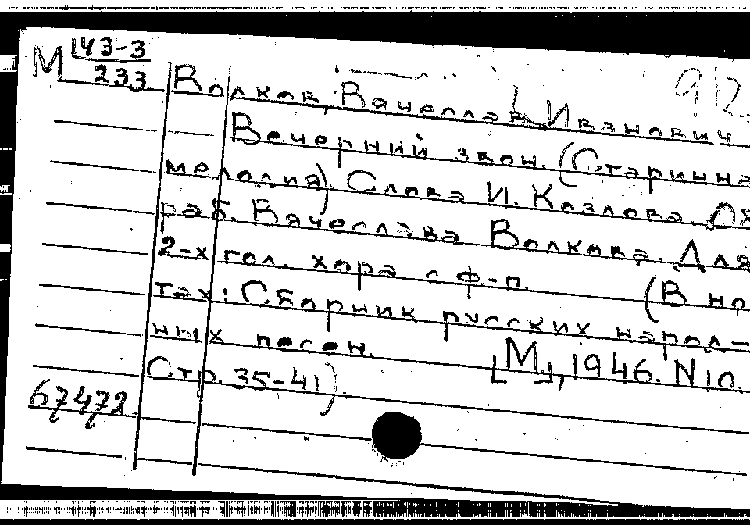 М 143-3
233
912
Волков, Вячеслав Иванович
Вечерний звон. (Старинна
мелодия) Слова И. Козлова.
раб. Вячеслава Волкова. Для
2-х гол. хора с ф-п. (В но
тах: Сборник русских народ-
ных песен. [М], 1946. N 10.
Стр. 35-41).
67472